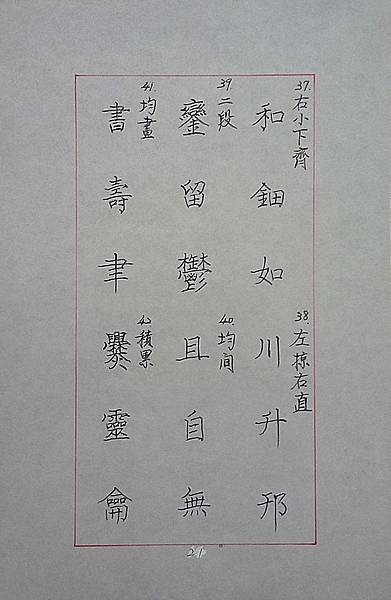 37.右小下齊
和鈿如
38.左掠右直
川升邦
39.二段
鑾留鬱
40.均间
且自無
41.均畫
書壽聿
42.積累
爨靈龠
21